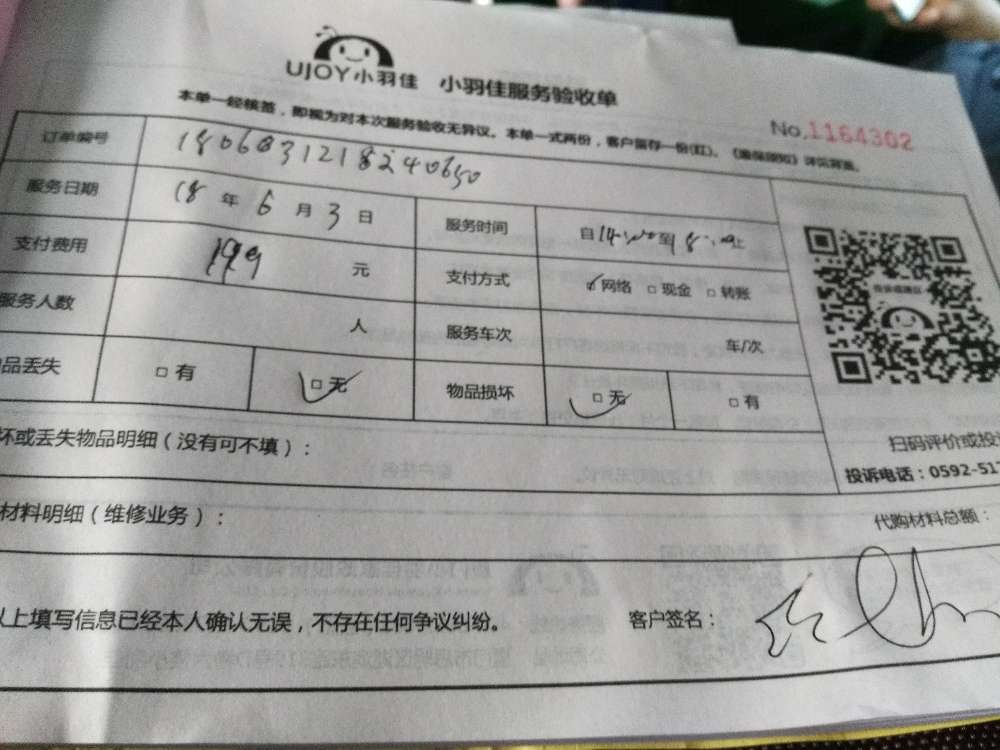 UJOY小羽佳 小羽佳服务验收单
本单一经核签，即视为对本次服务验收无异议。本单一式两份，客户留存一份(红)。《服务须知》详见背面。
No.1164302
订单编号
服务日期 18 年 6 月 3 日 服务时间 自 14:00 至 18:00 止
支付费用 199 元 支付方式 网络 □ 现金 □ 转账
服务人数 人 服务车次 车/次
品丢失 □ 有 □ 无 物品损坏 □ 无 □ 有
坏或丢失物品明细（没有可不填）：
扫码评价或投
投诉电话：0592-517
材料明细（维修业务）：
代购材料总额：
以上填写信息已经本人确认无误，不存在任何争议纠纷。 客户签名：